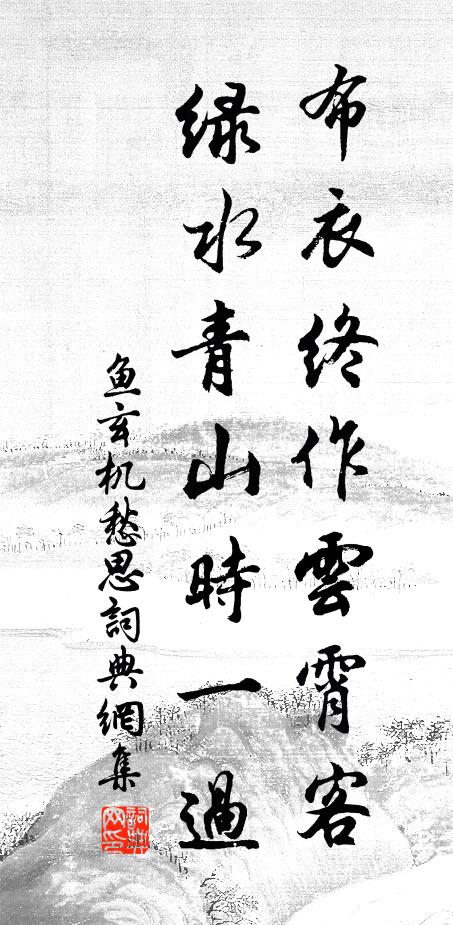 布衣終作雲霄客
綠水青山時一過
鱼玄机愁思詞典網集